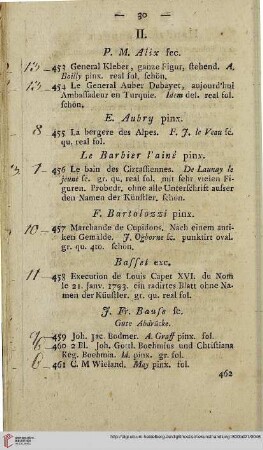 — 30 —
II.
P. M. Alix fec.
13 — 453 General Kleber, ganze Figur, stehend. A.
Boilly pinx. real fol. schön.
13 — 454 Le General Auber Dubayet, aujourd'hui
Ambassadeur en Turquie. Idem del. real fol.
schön.
E. Aubry pinx.
8 455 La bergere des Alpes. F. J. le Veau sc.
qu. real fol.
Le Barbier l'ainé pinx.
456 Le bain des Circassiennes. De Launay le
jeune sc. gr. qu. real fol. mit sehr vielen Fi-
guren. Probedr. ohne alle Unterschrift ausser
den Namen der Künstler. schön.
F. Bartolozzi pinx.
10 — 457 Marchande de Cupidons. Nach einem anti-
ken Gemälde. J. Ogborne sc. punktirt oval.
gr. qu. 4to. schön.
Basset exc.
11 — 458 Execution de Louis Capet XVI. du Nom
le 21. Janv. 1793. ein radirtes Blatt ohne Na-
men der Künstler. gr. qu. real fol.
J. Fr. Bause sc.
Gute Abdrücke.
459 Joh. Jac. Bodmer. A. Graff pinx. fol.
460 2 Bl. Joh. Gottl. Boehmius und Christiana
Reg. Boehmin. Id. pinx. gr. fol.
461 C. M Wieland. May pinx. fol.
462